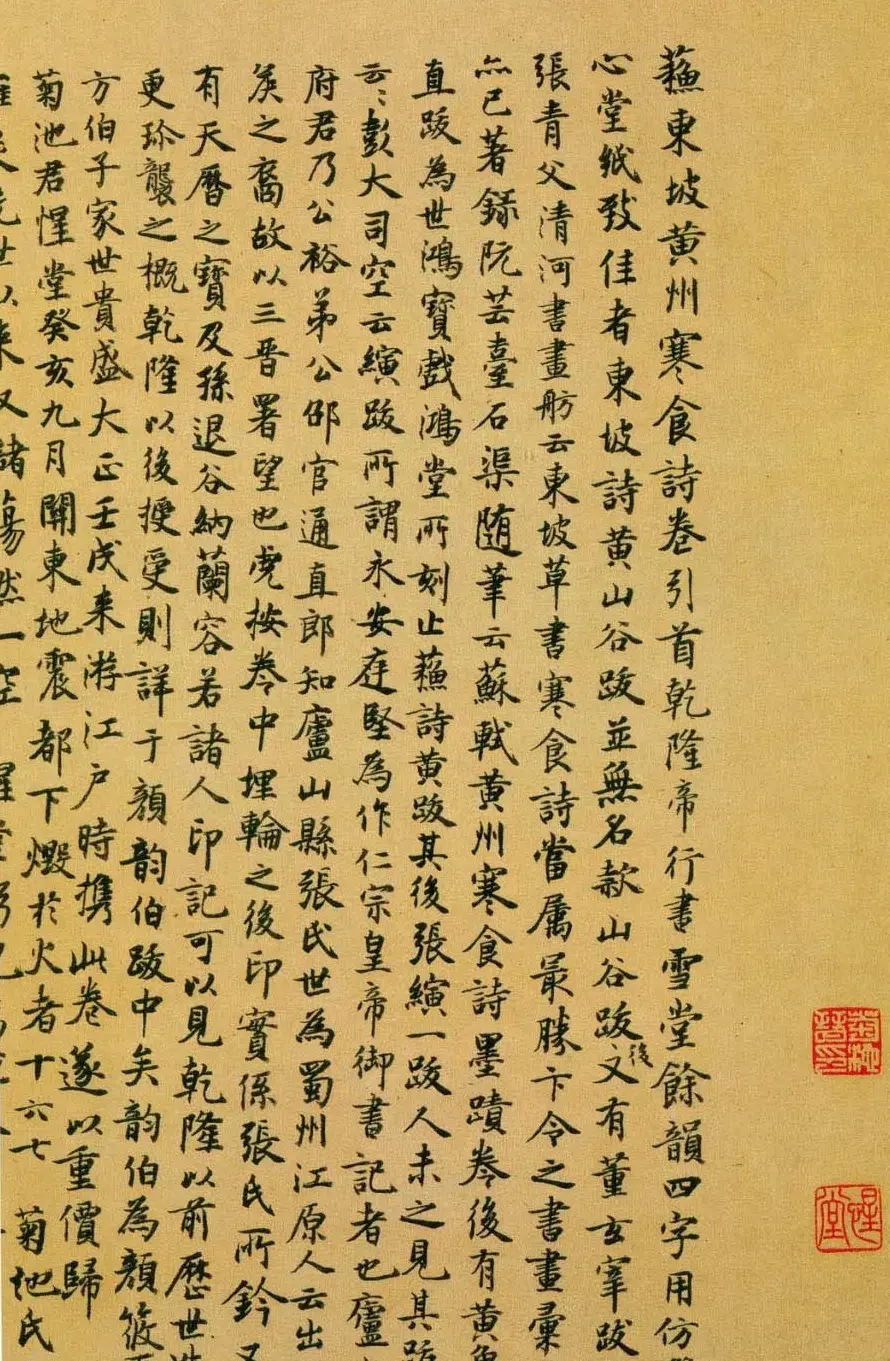 蘓東坡黄州寒食詩卷引首乾隆帝行書雪堂餘韻四字用仿
心堂紙致佳者東坡詩黄山谷跋並無名款山谷跋後又有董玄宰跋
張青父清河書畫舫云東坡草書寒食詩當属最勝卞令之書畫彙
亦已著録阮芸臺石渠随筆云蘇軾黄州寒食詩墨蹟卷後有黄魯
直跋為世鴻寶戲鴻堂所刻止蘓詩黄跋其後張縯一跋人未之見其跋
云〻彭大司空云縯跋所謂永安庭堅為作仁宗皇帝御書記者也廬
府君乃公裕弟公邵官通直郎知廬山縣張氏世為蜀州江原人云出
矦之裔故以三晋署望也虎按卷中埋輪之後印實係張氏所鈐又
有天曆之寶及孫退谷納蘭容若諸人印記可以見乾隆以前歷世
更珎襲之概乾隆以後授受則詳于顔韵伯跋中矣韵伯為顔筱
方伯子家世貴盛大正壬戌来游江户時攜此卷遂以重價歸
菊池君惺堂癸亥九月關東地震都下燬於火者十六七 菊池氏
以来又諸蕩然一空
菊池晉印
惺堂